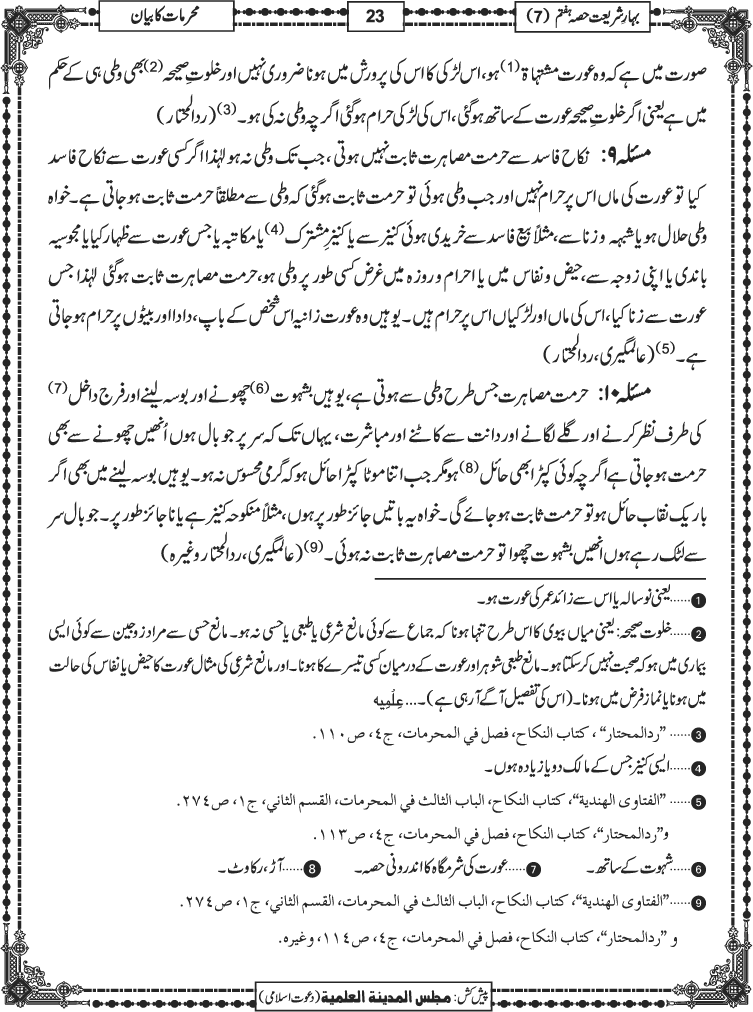 بہارِ شریعت حصہ ہفتم (7)
23
محرمات کا بیان
صورت میں ہے کہ وہ عورت مشتہاۃ (1) ہو، اس لڑکی کا اس کی پرورش میں ہونا ضروری نہیں اور خلوتِ صحیحہ (2) بھی وطی ہی کے حکم
میں ہے یعنی اگر خلوتِ صحیحہ عورت کے ساتھ ہوگئی، اس کی لڑکی حرام ہوگئی اگرچہ وطی نہ کی ہو۔ (3) (ردالمحتار)
مسئلہ ۹: نکاح فاسد سے حرمت مصاہرت ثابت نہیں ہوتی، جب تک وطی نہ ہو لہٰذا اگر کسی عورت سے نکاح فاسد
کیا تو عورت کی ماں اس پر حرام نہیں اور جب وطی ہوئی تو حرمت ثابت ہوگئی کہ وطی سے مطلقاً حرمت ثابت ہوجاتی ہے۔ خواہ
وطی حلال ہو یا شبہہ و زنا سے، مثلاً بیع فاسد سے خریدی ہوئی کنیز سے یا کنیزِ مشترک (4) یا مکاتبہ یا جس عورت سے ظہار کیا یا مجوسیہ
باندی یا اپنی زوجہ سے، حیض و نفاس میں یا احرام و روزہ میں غرض کسی طور پر وطی ہو، حرمت مصاہرت ثابت ہوگئی لہٰذا جس
عورت سے زنا کیا، اس کی ماں اور لڑکیاں اس پر حرام ہیں۔ یوہیں وہ عورت زانیہ اس شخص کے باپ، دادا اور بیٹوں پر حرام ہوجاتی
ہے۔ (5) (عالمگیری، ردالمحتار)
مسئلہ ۱۰: حرمت مصاہرت جس طرح وطی سے ہوتی ہے، یوہیں بشہوت (6) چھونے اور بوسہ لینے اور فرج داخل (7)
کی طرف نظر کرنے اور گلے لگانے اور دانت سے کاٹنے اور مباشرت، یہاں تک کہ سر پر جو بال ہوں اُنھیں چھونے سے بھی
حرمت ہوجاتی ہے اگرچہ کوئی کپڑا بھی حائل (8) ہو مگر جب اتنا موٹا کپڑا حائل ہو کہ گرمی محسوس نہ ہو۔ یوہیں بوسہ لینے میں بھی اگر
باریک نقاب حائل ہو تو حرمت ثابت ہوجائے گی۔ خواہ یہ باتیں جائز طور پر ہوں، مثلاً منکوحہ کنیز ہے یا ناجائز طور پر۔ جو بال سر
سے لٹک رہے ہوں انھیں بشہوت چھوا تو حرمت مصاہرت ثابت نہ ہوئی۔ (9) (عالمگیری، ردالمحتار وغیرہ)
1......یعنی نو سالہ یا اس سے زائد عمر کی عورت ہو۔
2......خلوت صحیحہ: یعنی میاں بیوی کا اس طرح تنہا ہونا کہ جماع سے کوئی مانع شرعی یا طبعی یا حسی نہ ہو۔ مانع حسی سے مراد زوجین سے کوئی ایسی
بیماری میں ہو کہ صحبت نہیں کر سکتا ہو۔ مانع طبعی شوہر اور عورت کے درمیان کسی تیسرے کا ہونا۔ اور مانع شرعی کی مثال عورت کا حیض یا نفاس کی حالت
میں ہونا یا نماز فرض میں ہونا۔ (اس کی تفصیل آگے آرہی ہے)۔... عِلْمِیہ
3......"ردالمحتار"، کتاب النکاح، فصل في المحرمات، ج٤، ص١١٠.
4......ایسی کنیز جس کے مالک دو یا زیادہ ہوں۔
5......"الفتاوی الهندية"، کتاب النکاح، الباب الثالث في المحرمات، القسم الثاني، ج١، ص٢٧٤.
و"ردالمحتار"، کتاب النکاح، فصل في المحرمات، ج٤، ص١١٣.
6......شہوت کے ساتھ۔ 7......عورت کی شرمگاہ کا اندرونی حصہ۔ 8......آڑ، رکاوٹ۔
9......"الفتاوی الهندية"، کتاب النکاح، الباب الثالث في المحرمات، القسم الثاني، ج١، ص٢٧٤.
و "ردالمحتار"، کتاب النکاح، فصل في المحرمات، ج٤، ص١١٤، وغيره.
پیش کش: مجلس المدینة العلمیة (دعوت اسلامی)